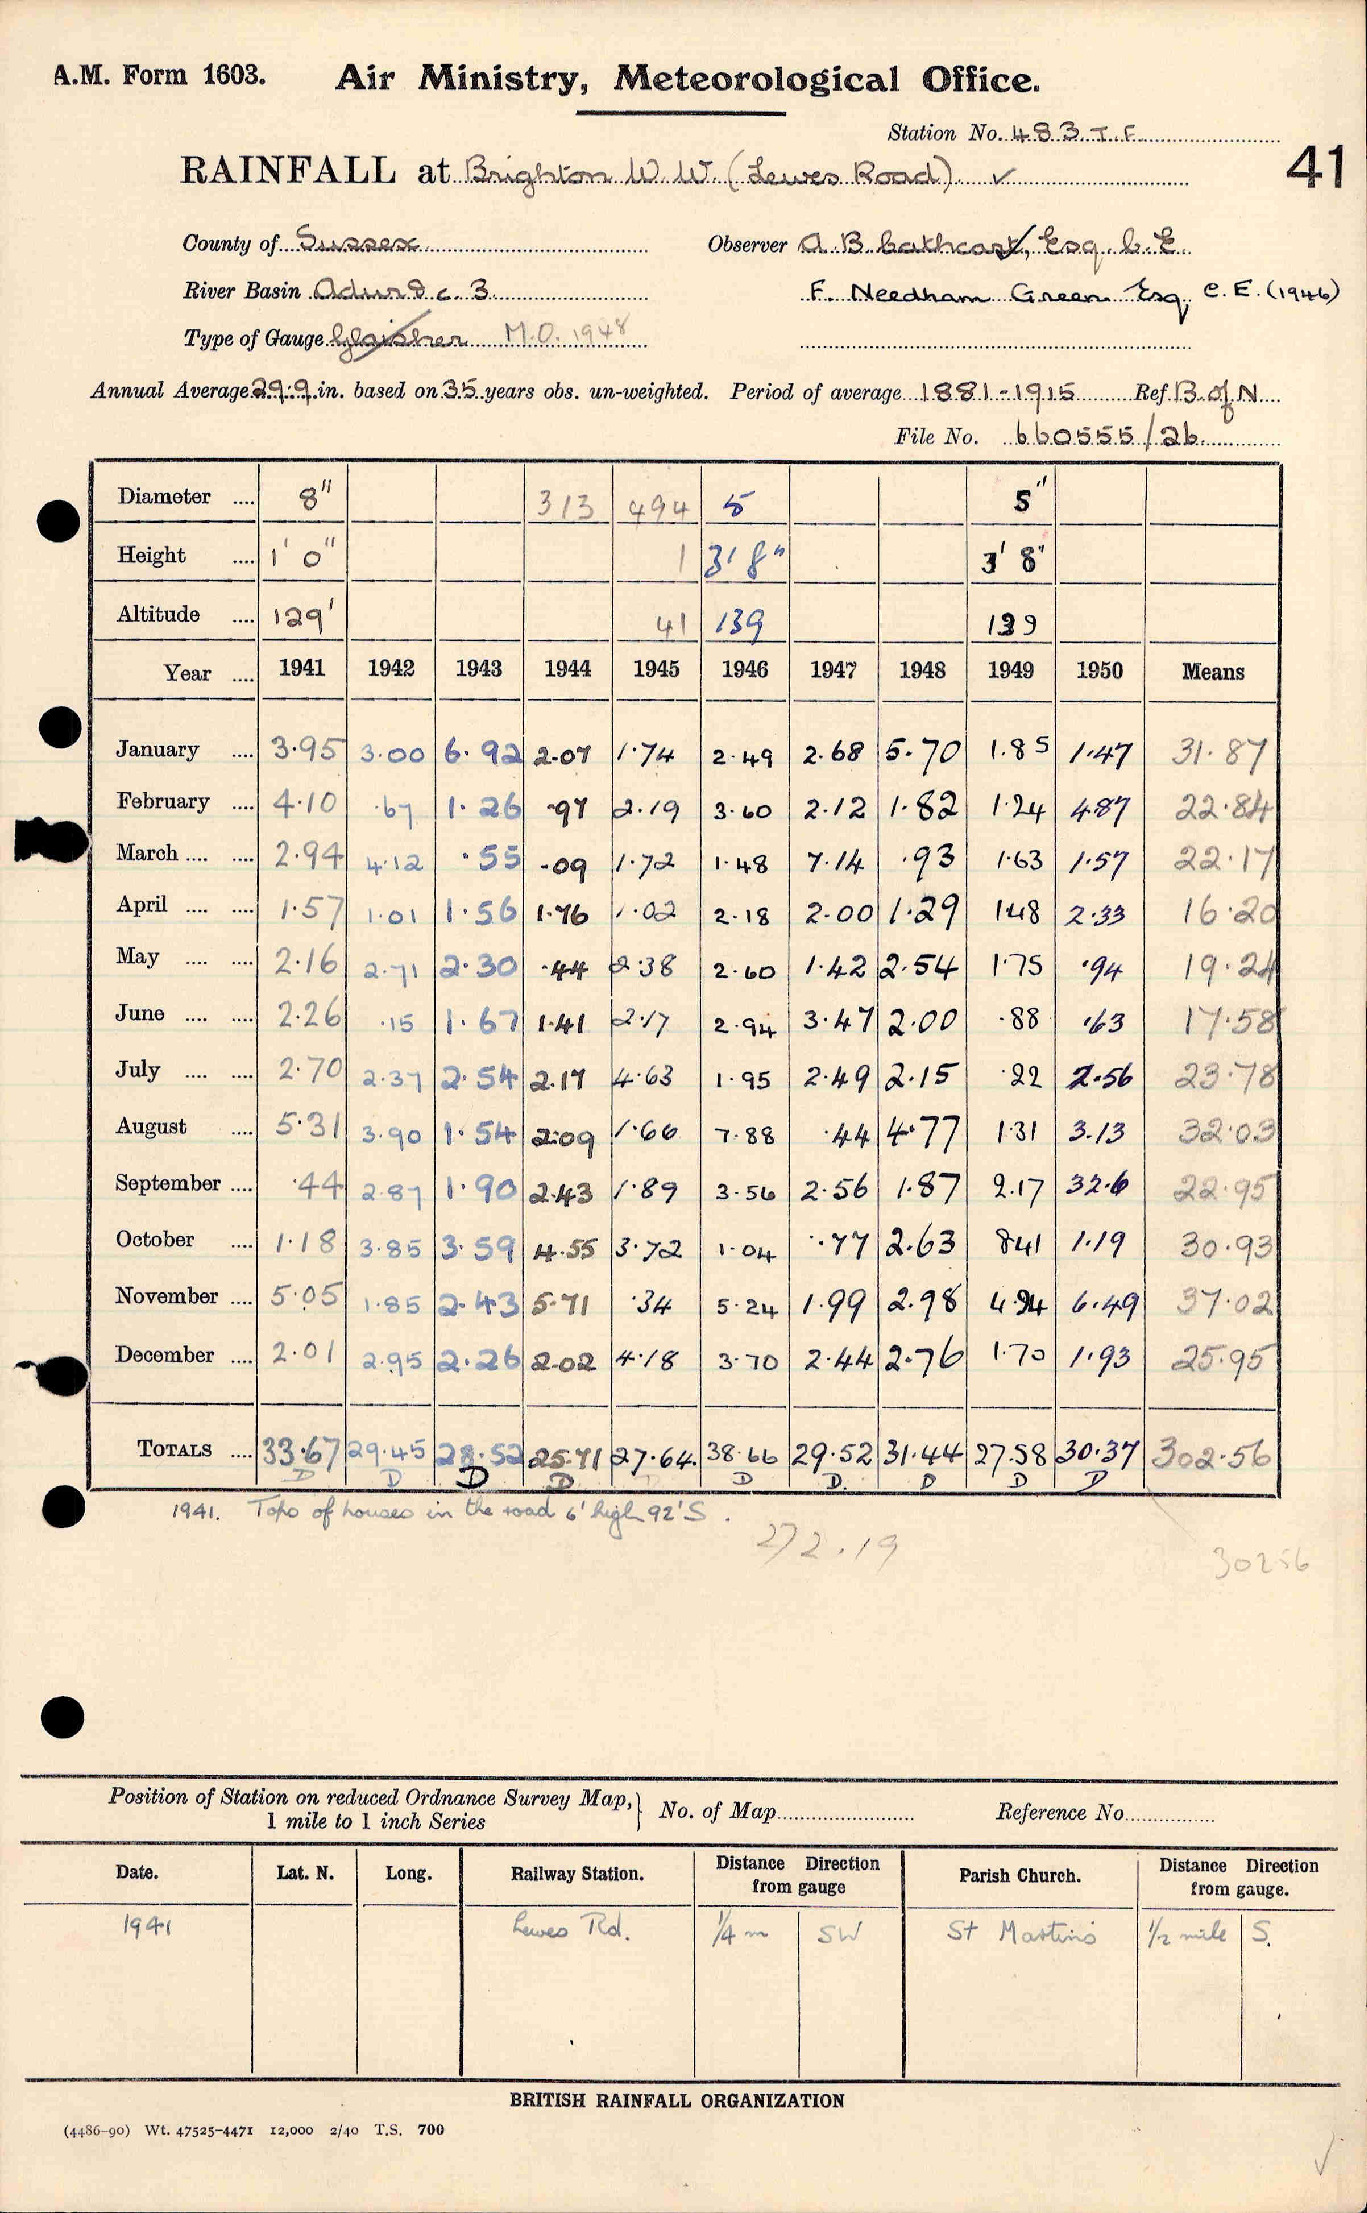 A.M. Form 1603. Air Ministry, Meteorological Office.
Station No. 483 T.F.
41
RAINFALL at Brighton W.W. (Lewes Road) ✓
County of Sussex Observer A B Cathcart, Esq. C.E.
River Basin Adur &c. 3 F. Needham Green Esq, C.E. (1946)
Type of Gauge Glaisher M.O. 1948
Annual Average 29.9 in. based on 35 years obs. un-weighted. Period of average 1881-1915 Ref B. of N.
File No. 660555/26
Diameter .... 8" 313 494 5 5"
Height .... 1' 0" 1 3' 8" 3' 8"
Altitude .... 129' 41 139 139
Year .... 1941 1942 1943 1944 1945 1946 1947 1948 1949 1950 Means
January .... 3.95 3.00 6.92 2.07 1.74 2.49 2.68 5.70 1.85 1.47 31.87
February .... 4.10 .67 1.26 .97 2.19 3.60 2.12 1.82 1.24 4.87 22.84
March .... .... 2.94 4.12 .55 .09 1.72 1.48 7.14 .93 1.63 1.57 22.17
April .... .... 1.57 1.01 1.56 1.76 1.02 2.18 2.00 1.29 1.48 2.33 16.20
May .... .... 2.16 2.71 2.30 .44 2.38 2.60 1.42 2.54 1.75 .94 19.24
June .... .... 2.26 .15 1.67 1.41 2.17 2.94 3.47 2.00 .88 .63 17.58
July .... .... 2.70 2.37 2.54 2.17 4.63 1.95 2.49 2.15 .22 2.56 23.78
August .... 5.31 3.90 1.54 2.09 1.66 7.88 .44 4.77 1.31 3.13 32.03
September .... .44 2.87 1.90 2.43 1.89 3.56 2.56 1.87 2.17 32.6 22.95
October .... 1.18 3.85 3.59 4.55 3.72 1.04 .77 2.63 841 1.19 30.93
November .... 5.05 1.85 2.43 5.71 .34 5.24 1.99 2.98 4.94 6.49 37.02
December .... 2.01 2.95 2.26 2.02 4.18 3.70 2.44 2.76 1.70 1.93 25.95
TOTALS .... 33.67 29.45 28.52 25.71 27.64 38.66 29.52 31.44 27.58 30.37 302.56
D D D D D D D D D
1941. Tops of houses in the road 6' high 92' S.
272.19
30256
Position of Station on reduced Ordnance Survey Map, } No. of Map Reference No
1 mile to 1 inch Series
Date. Lat. N. Long. Railway Station. Distance Direction from gauge Parish Church. Distance Direction from gauge.
1941 Lewes Rd. 1/4 m SW St Martins 1/2 mile S.
BRITISH RAINFALL ORGANIZATION
(4486-90) Wt. 47525-4471 12,000 2/40 T.S. 700
✓